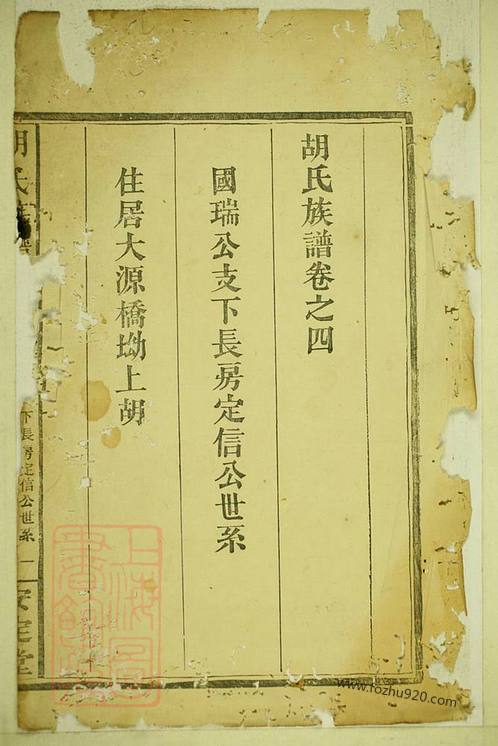 胡氏族譜卷之四
國瑞公支下長房定信公世系
住居大源橋坳上胡
胡氏族譜
下長房定信公世系
安定堂
上海圖書館藏
www.fozhu920.com